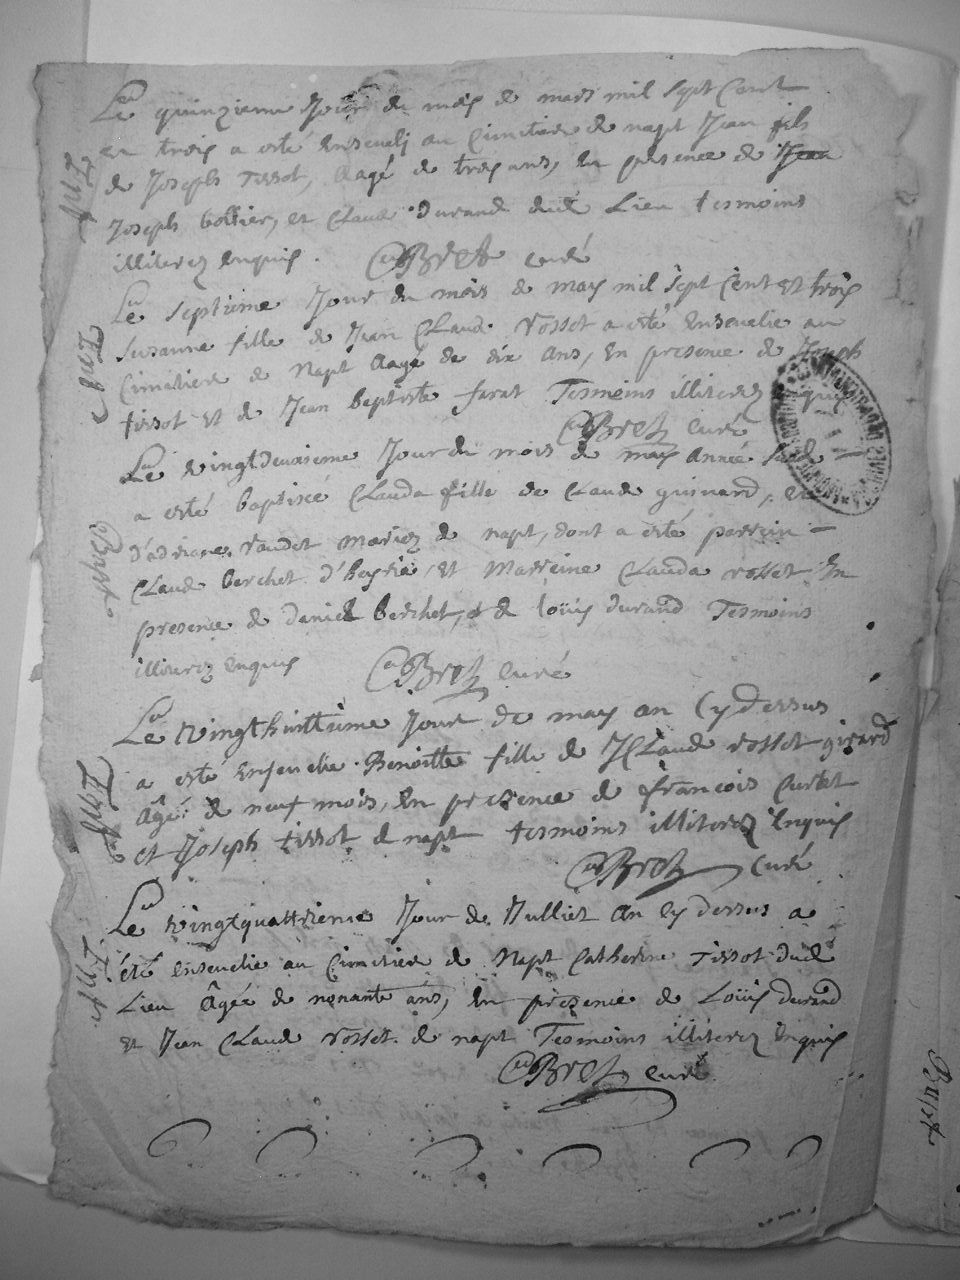 Le quinzieme Jour du mois de mars mil sept Cent
et trois a esté Enseveli au Cimitiere de napt Jean fils
de Joseph Tissot, Aagé de trois ans, En presence de Jean
Joseph bollier, et Claude Durand dud Lieu tesmoins
illiterez Enquis. Bret curé
Ent
Le septieme Jour du mois de may mil sept Cent et trois
Susanne fille de Jean Claude Rosset a esté Ensevelie au
Cimitiere de Napt Aagé de dix Ans, En presence de Joseph
tissot et de Jean baptiste farat Tesmoins illiterez Enquis
Bret curé
Le vingtdeuxieme Jour du mois de may Année sud
a esté baptisée Clauda fille de Claude guinard, et
d'adriane vaudet mariez de napt, dont a esté parrein
Claude berchet d'heyria, et Marreine Clauda rosset En
presence de Daniel berchet, et de loüis durand Tesmoins
illiterez Enquis Bret curé
Le vingthuittieme Jour de may an Cy dessus
a esté Ensevelie Benoitte fille de J Claude rosset girard
Âgée de neuf mois, En presence de françois Curtet
et Joseph tissot de napt tesmoins illiterez Enquis
Bret Curé
Le vingtquattrieme Jour de Julliet An Cy dessus a
été Ensevelie au Cimitiere de Napt Catherine Tissot dud
Lieu Âgée de nonante ans, En presence de Loüis durand
et Jean Claude rosset de napt Tesmoins illiterez Enquis
Bret curé